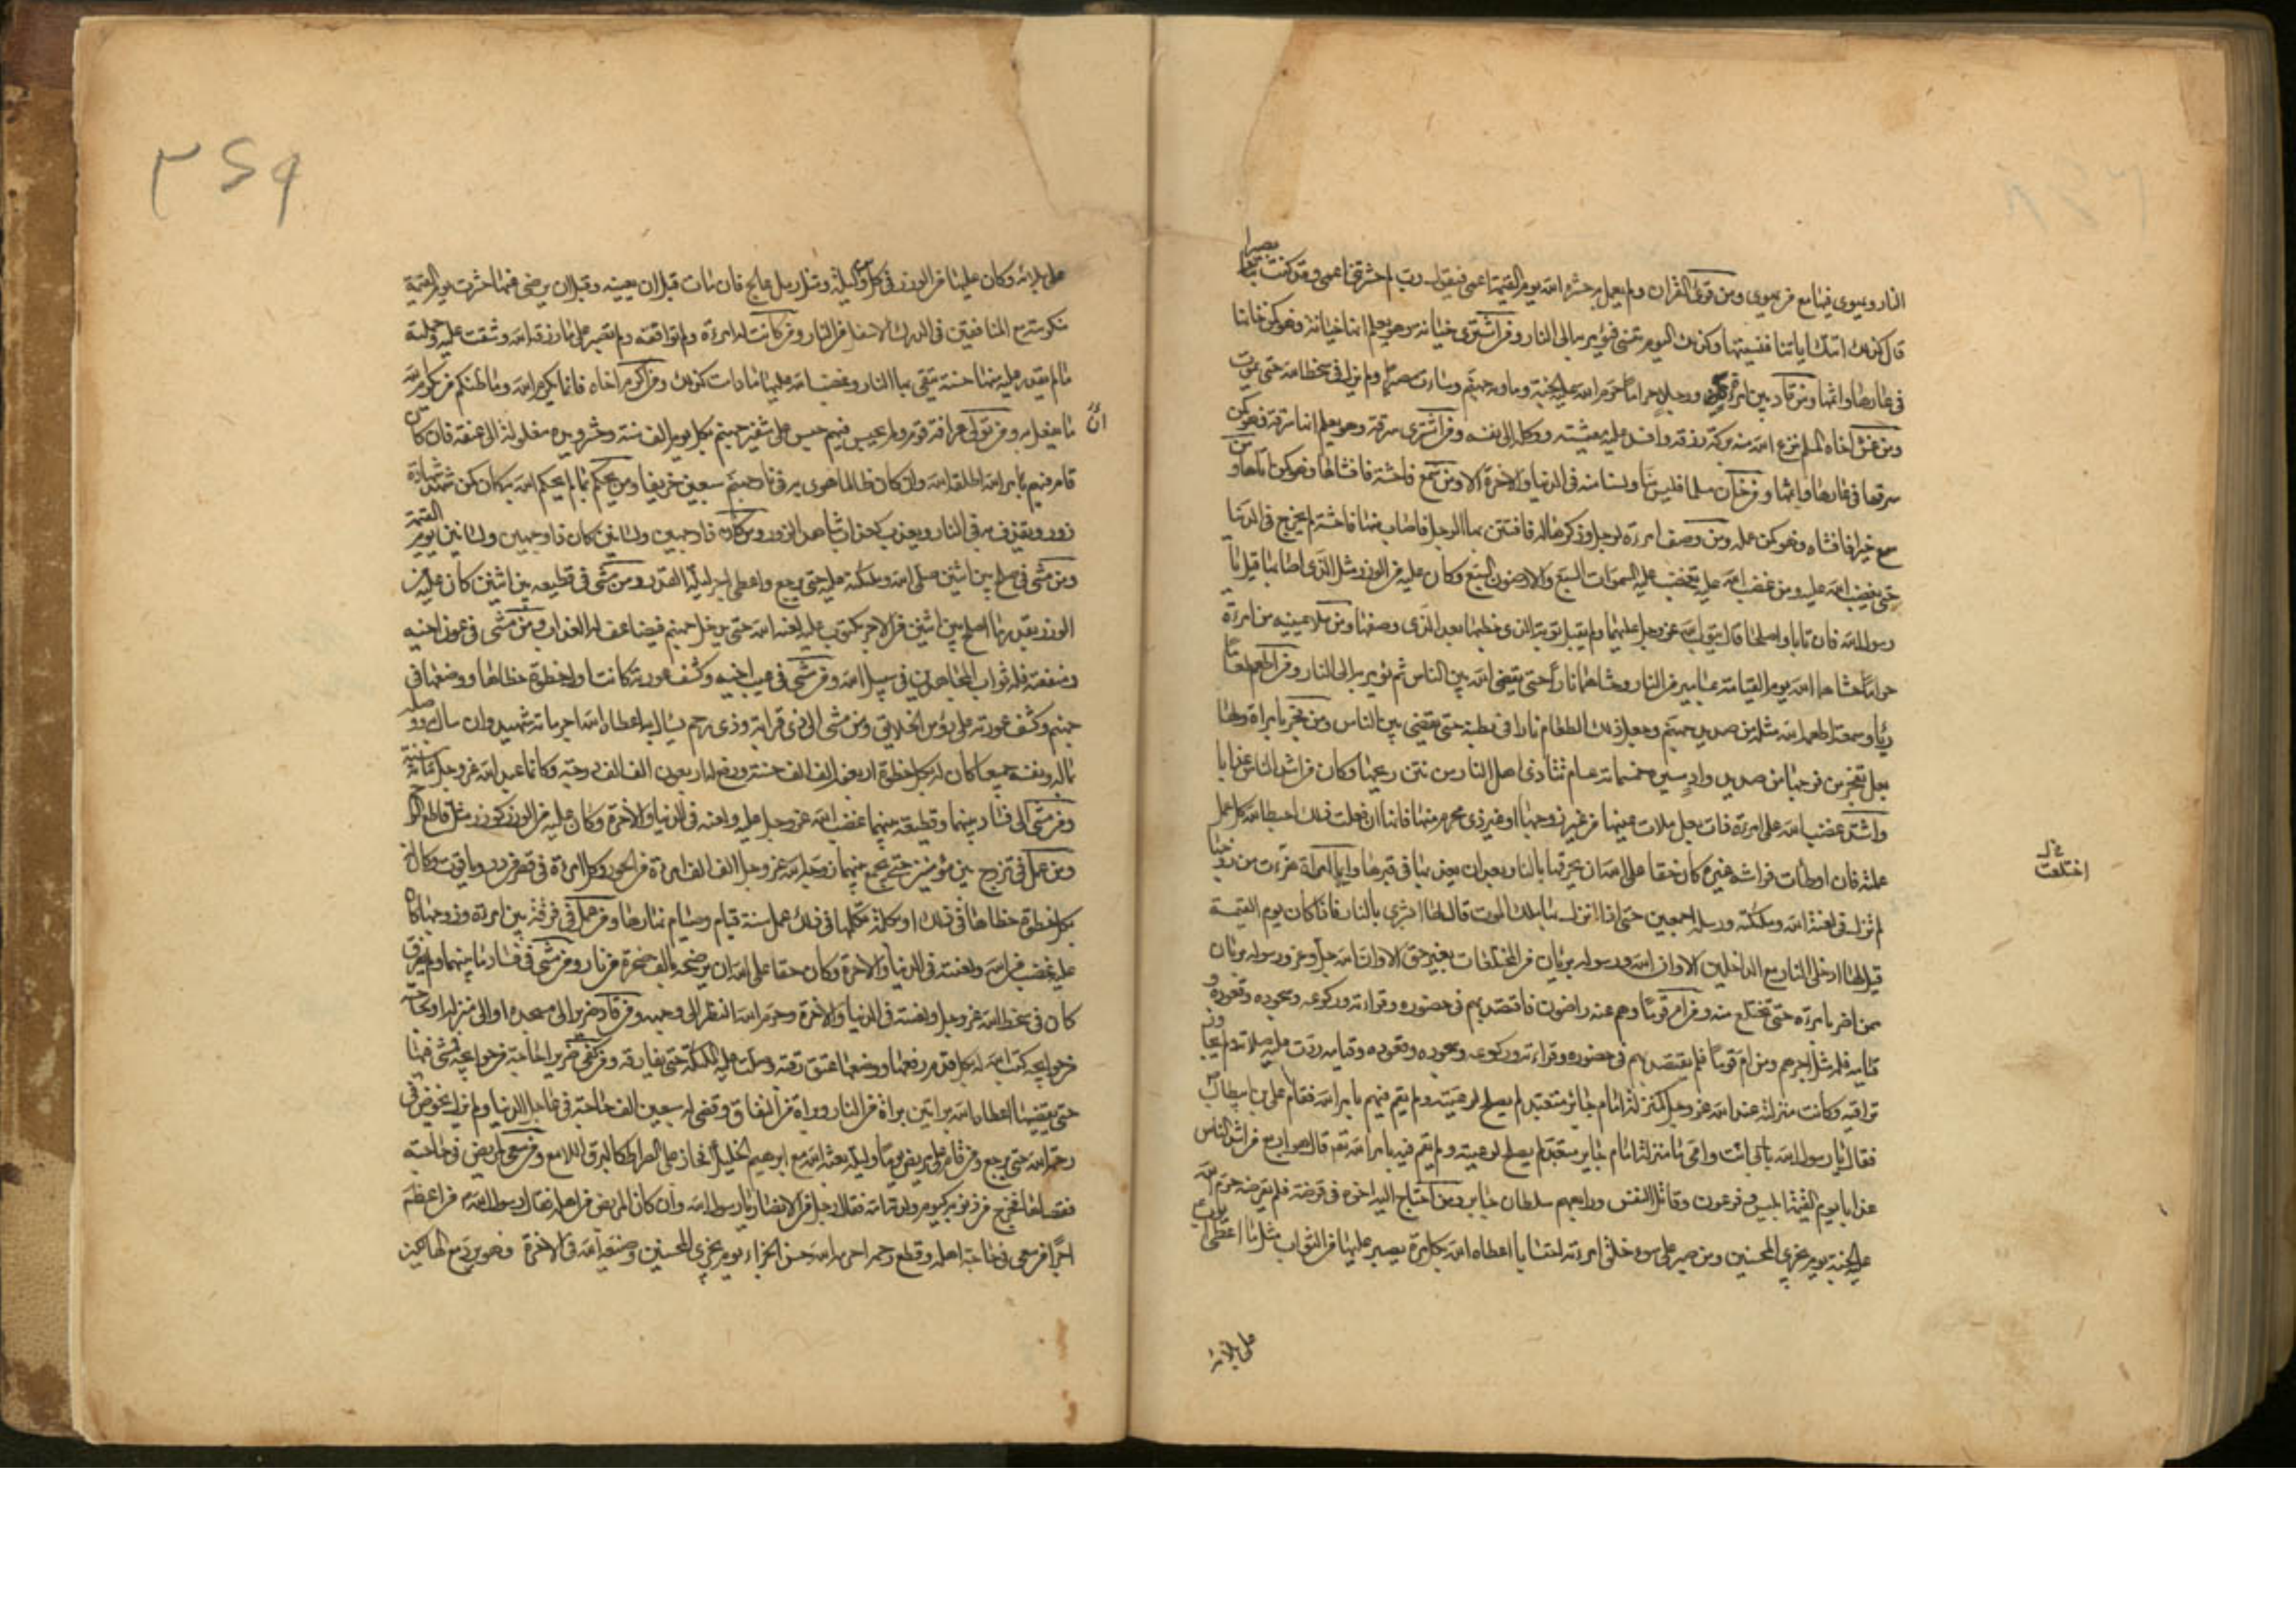 النار ويهوى فيها مع من يهوى ومن قرء القران ولم يعمل به حشره الله يوم القيمة اعمى فيقول رب لم حشرتني اعمى وقد كنت بصيرا
قال كذلك اتتك اياتنا فنسيتها وكذلك اليوم تنسى فيؤمر به الى النار ومن اشترى خيانة وهو يعلم انها خيانة فهو كمن خانها
في عارها واثمها ومن قاد بين امرأة ورجل حراما حرم الله عليه الجنة وماويه جهنم وساءت مصيرا ولم يزل في سخط الله حتى يموت
ومن غش اخاه المسلم نزع الله منه بركة رزقه وافسد عليه معيشته ووكله الى نفسه ومن اشترى سرقة وهو يعلم انها سرقة فهو كمن
سرقها في عارها واثمها ومن خان مسلما فليس منا ولسنا منه في الدنيا والاخرة الا ومن سمع فاحشة فافشاها فهو كمن اتاها ومن
سمع خيرا فافشاه فهو كمن عمله ومن وصف امرءة لرجل وذكرها له فافتتن بها الرجل فاصاب منها فاحشة لم يخرج من الدنيا
حتى يغضب الله عليه ومن غضب الله عليه غضب عليه السموات السبع والارضون السبع وكان عليه من الوزر مثل الذى اصابها قيل يا
رسول الله فان تابا واصلحا قال يتوب الله عز وجل عليهما ولم يقبل توبة الذى خطبها بعد الذى وصفها ومن ملا عينيه من امرءة
حراما حشاهما الله يوم القيامة بمسامير من النار وحشاهما نارا حتى يقضى الله بين الناس ثم يؤمر به الى النار ومن اطعم طعاما
رياء وسمعة اطعمه الله مثله من صديد جهنم وجعل ذلك الطعام نارا في بطنه حتى يقضى بين الناس ومن فجر بامراة ولها
بعل تفجر من فرجها من صديد واد مسيرة خمسمائة عام يتاذى اهل النار من نتن ريحها وكان من اشد الناس عذابا
واشتد غضب الله على امرءة ذات بعل ملات عينها من غير زوجها او غير ذى محرم منها فانها ان فعلت ذلك احبط الله كل عمل
عملته فان اوطات فراشه غيره كان حقا على الله ان يحرقها بالنار بعد ان يعذبها في قبرها وايما امراة هزءت من زوجها
لم تزل في لعنة الله وملئكته ورسله اجمعين حتى اذا نزل بها ملك الموت قال لها ابشرى بالنار فاذا كان يوم القيمة
قيل لها ادخلى النار مع الداخلين الا وان الله ورسوله بريئان من المختلعات بغير حق الا وان الله جل وعز ورسوله بريئان
ممن اضر بامرءة حتى تختلع منه ومن ام قوما وهم عنه راضون فاقتصد بهم في حضوره وقراءته وركوعه وسجوده وقعوده و
قيامه فله مثل اجرهم ومن ام قوما فلم يقتصد بهم في حضوره وقراءته وركوعه وسجوده وقعوده وقيامه ردت عليه صلاته ولم تجاوز
تراقيه وكانت منزلته عند الله عز وجل كمنزلة امام جائر متعد لم يصلح لرعيته ولم يقم فيهم بامر الله فقام على بن ابيطالب
فقال يا رسول الله بابى انت وامى ما منزلة امام جاير متعد لم يصلح لرعيته ولم يقم فيه بامر الله تعه قال هو رابع من اشد الناس
عذابا يوم القيمة ابليس وفرعون وقاتل النفس ورابعهم سلطان جاير ومن احتاج اليه اخوه في قرضه فلم يقرضه حرم الله
عليه الجنة يوم يجزى المحسنين ومن صبر على سوء خلق امرءته احتسابا اعطاه الله بكل مرة يصبر عليها من الثواب مثل ما اعطى ايوب
على بلائه
اختلعت
على بلائه وكان عليها من الوزر في كل يوم وليلة مثل رمل عالج فان ماتت قبل ان يعينه وقبل ان يرضى عنها حشرت يوم القيمة
منكوسة مع المنافقين في الدرك الاسفل من النار ومن كانت له امرءة ولم توافقه ولم تصبر على ما رزقه الله وشقت عليه وحملته
ما لم يقدر عليه لم يقبل منها حسنة تتقى بها النار وغضب الله عليها ما دامت كذلك ومن اكرم اخاه فانما يكرم الله وما ظنكم بمن يكرم الله
ان
ما يفعل به ومن تولى عرافة قوم ولم يحسن فيهم حبس على شفير جهنم بكل يوم الف سنة وحشر ويده مغلولة الى عنقه فان كان
قام فيهم بامر الله اطلقه الله وان كان ظالما هوى به في نار جهنم سبعين خريفا ومن لم يحكم بما انزل الله كان كمن شهد شهادة
زور ويقذف به في النار ويعذب بعذاب شاهد الزور ومن كان ذا وجهين ولسانين كان ذا وجهين ولسانين يوم القيمة
ومن مشى في صلح بين اثنين صلى الله وملئكته عليه حتى يرجع واعطى اجر ليلة القدر ومن مشى في قطيعة بين اثنين كان عليه من
الوزر بقدر ما لمن اصلح بين اثنين من الاجر مكتوب عليه لعنة الله حتى يدخل جهنم فيضاعف له العذاب ومن مشى في عون اخيه
ومنفعته فله ثواب المجاهدين في سبيل الله ومن مشى في عيب اخيه وكشف عورته كانت اول خطوة خطاها ووضعها في
جهنم وكشف عورته على رؤس الخلايق ومن مشى الى ذى قرابة وذى رحم يسال به اعطاه الله اجر مائة شهيد وان سال به ووصله
بماله ونفسه جميعا كان له بكل خطوة اربعون الف الف حسنة ورفع له اربعون الف الف درجة وكانما عبد الله عز وجل مائة سنة
ومن مشى في فساد بينهما وقطيعة بينهما غضب الله عز وجل عليه ولعنه في الدنيا والاخرة وكان عليه من الوزر كوزر مثل قاطع الرحم
ومن عمل في تزويج بين مؤمنين حتى يجمع بينهما زوجه الله عز وجل الف الف امرءة من الحور كل امرءة في قصر من در وياقوت وكان له
بكل خطوة خطاها في ذلك او بكلمة تكلمها في ذلك عمل سنة قيام ليلها وصيام نهارها ومن عمل في فرقة بين امرءة وزوجها كان
عليه غضب من الله ولعنته في الدنيا والاخرة وكان حقا على الله ان يرضخه بالف صخرة من نار ومن مشى في فساد ما بينهما ولم يفرق
كان في سخط الله عز وجل ولعنته في الدنيا والاخرة وحرم الله النظر الى وجهه ومن قاد ضريرا الى مسجده او الى منزله او لحاجة
من حوايجه كتب الله له بكل قدم رفعها ووضعها عتق رقبة وصلت عليه الملئكة حتى يفارقه ومن كفى ضريرا حاجة من حوايجه فمشى فيها
حتى يقضيها اعطاه الله براتين براة من النار وبراة من النفاق وقضى له سبعين الف حاجة في عاجل الدنيا ولم يزل يخوض في
رحمة الله حتى يرجع ومن قام على مريض يوما وليلة بعثه الله مع ابرهيم الخليل فجاز على الصراط كالبرق اللامع ومن سعى لمريض في حاجته
فقضاها خرج من ذنوبه كيوم ولدته امه فقال رجل من الانصار يا رسول الله وان كان المريض من اهله فقال رسول الله من اعظم
اجرا من سعى في حاجة اهله ومن قطع رحمه احرمه الله حسن الجزاء يوم يجزى المحسنين وضيعه الله في الاخرة فهو يرد مع الهالكين